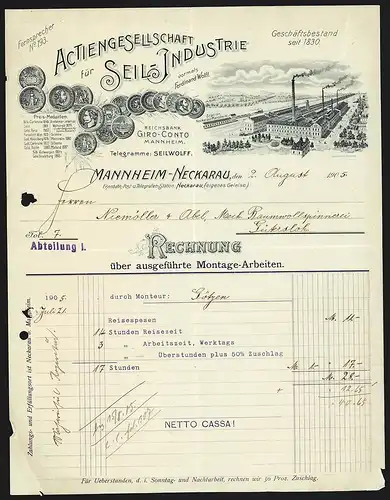 Fernsprecher
No 193.
ACTIENGESELLSCHAFT
für
SEIL-INDUSTRIE
vormals
Ferdinand Wolff
Geschäftsbestand
seit 1830.
Preis-Medaillen
REICHSBANK
GIRO-CONTO
MANNHEIM.
Telegramme: SEILWOLFF.
MANNHEIM-NECKARAU, den 2. August 1905
Eisenbahn, Post- u. Telegrafen-Station: Neckarau, (eigenes Geleise.)
Herren Niemöller & Abel, Mech. Baumwollspinnerei
Gütersloh
Fol. 7.
Abteilung I.
RECHNUNG
über ausgeführte Montage-Arbeiten.
1905. durch Monteur:
Juli 21. Reisespesen M. 11.-
14 Stunden Reisezeit
3 " Arbeitszeit, Werktags
" Überstunden plus 50% Zuschlag
17 Stunden M. 1 - 17.-
M. 28.-
12.65
40.65
NETTO CASSA!
Zahlungs- und Erfüllungsort ist Neckarau u. Mannheim.
Für Ueberstunden, d. i. Sonntag- und Nachtarbeit, rechnen wir 50 Proz. Zuschlag.